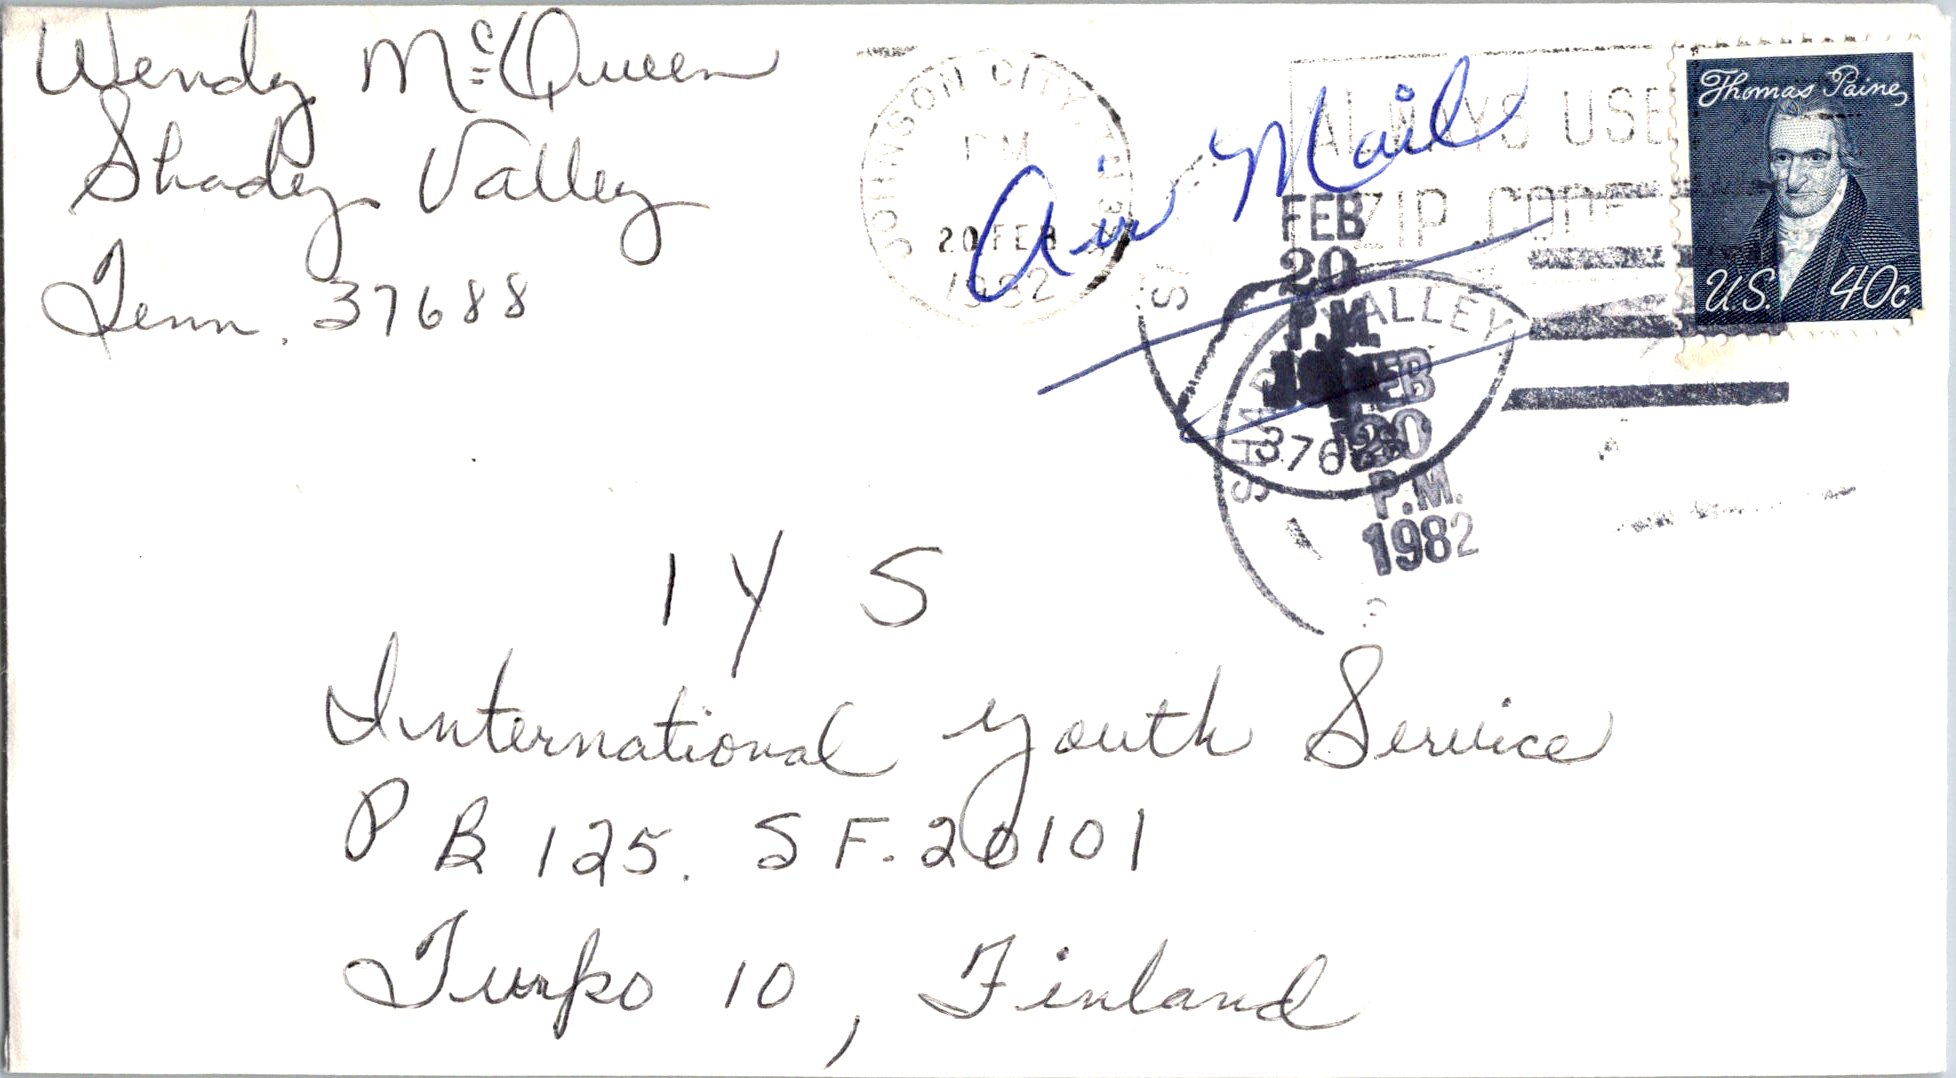 Wendy McQueen
Shady Valley
Tenn. 37688
JOHNSON CITY
PM
20 FEB
1982
Air Mail
ALWAYS USE
ZIP CODE
Thomas Paine
U.S. 40c
FEB
20
P.M.
SHADY VALLEY
FEB
20
P.M.
1982
I Y S
International Youth Service
P B 125. S F. 20101
Turko 10, Finland